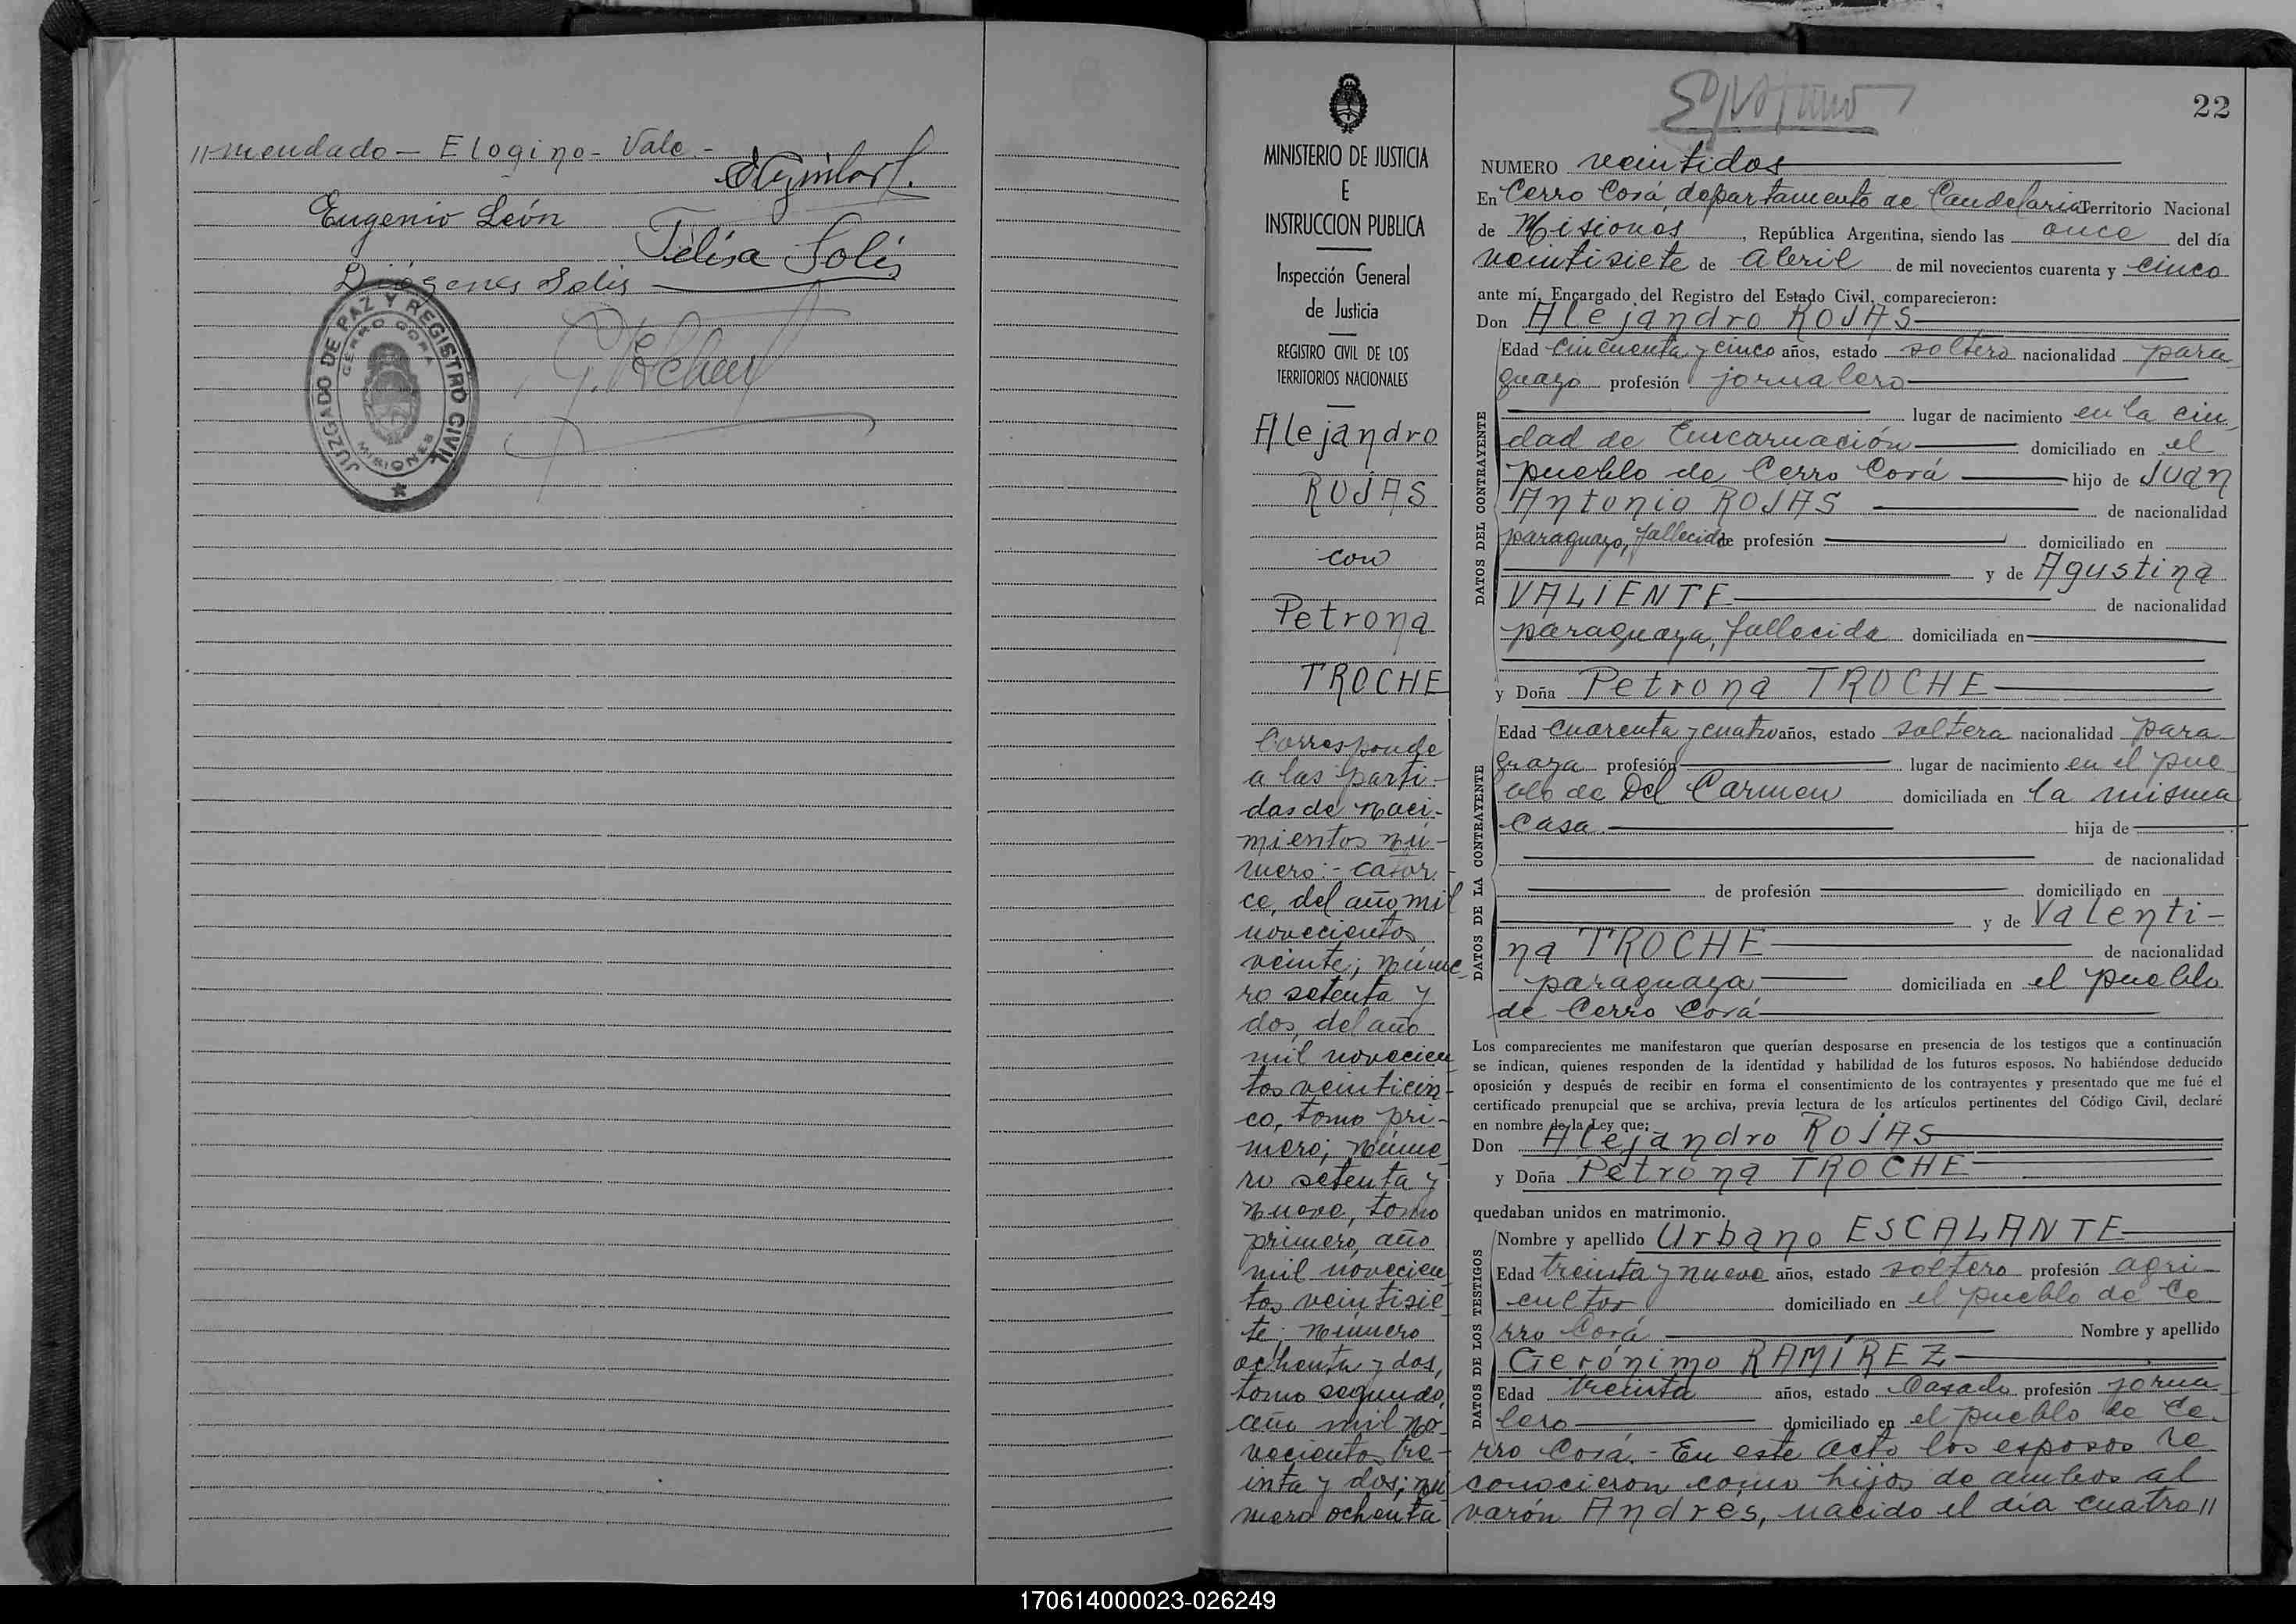 //mendado - Elogino - Vale.-
Eugenio León
Felisa Solis
Diógenes Solis
JUZGADO DE PAZ Y REGISTRO CIVIL
CERRO CORA
MISIONES
22
MINISTERIO DE JUSTICIA
E
INSTRUCCION PUBLICA
Inspección General
de Justicia
REGISTRO CIVIL DE LOS
TERRITORIOS NACIONALES
Alejandro
ROJAS
con
Petrona
TROCHE
Corresponde
a las parti-
das de naci-
mientos nú-
mero:- cator-
ce, del año mil
novecientos
veinte; núme-
ro setenta y
dos, del año
mil novecien
tos veinticin-
co, tomo pri-
mero; núme-
ro setenta y
nueve, tomo
primero, año
mil novecien
tos veintisie
te; número
ochenta y dos,
tomo segundo,
año mil no-
vecientos tre-
inta y dos; nú
mero ochenta
NUMERO veintidos
En Cerro Corá, departamento de Candelaria Territorio Nacional
de Misiones, República Argentina, siendo las once del día
veintisiete de Abril de mil novecientos cuarenta y cinco
ante mí, Encargado del Registro del Estado Civil, comparecieron:
Don Alejandro ROJAS
DATOS DEL CONTRAYENTE
Edad cincuenta y cinco años, estado soltero nacionalidad para-
guayo profesión jornalero
lugar de nacimiento en la ciu-
dad de Encarnación domiciliado en el
pueblo de Cerro Corá hijo de Juan
Antonio ROJAS de nacionalidad
paraguayo, fallecido de profesión domiciliado en
y de Agustina
VALIENTE de nacionalidad
paraguaya, fallecida domiciliada en
y Doña Petrona TROCHE
DATOS DE LA CONTRAYENTE
Edad cuarenta y cuatro años, estado soltera nacionalidad para-
guaya profesión lugar de nacimiento en el pue-
blo de Del Carmen domiciliada en la misma
casa. hija de
de nacionalidad
de profesión domiciliado en
y de Valenti-
na TROCHE de nacionalidad
paraguaya domiciliada en el pueblo
de Cerro Corá
Los comparecientes me manifestaron que querían desposarse en presencia de los testigos que a continuación
se indican, quienes responden de la identidad y habilidad de los futuros esposos. No habiéndose deducido
oposición y después de recibir en forma el consentimiento de los contrayentes y presentado que me fué el
certificado prenupcial que se archiva, previa lectura de los artículos pertinentes del Código Civil, declaré
en nombre de la Ley que;
Don Alejandro ROJAS
y Doña Petrona TROCHE
quedaban unidos en matrimonio.
DATOS DE LOS TESTIGOS
Nombre y apellido Urbano ESCALANTE
Edad treinta y nueve años, estado soltero profesión agri-
cultor domiciliado en el pueblo de Ce-
rro Corá Nombre y apellido
Gerónimo RAMÍREZ
Edad treinta años, estado casado profesión jorna-
lero domiciliado en el pueblo de Ce-
rro Corá.- En este acto los esposos re
conocieron como hijos de ambos al
varón Andres, nacido el día cuatro //
170614000023-026249